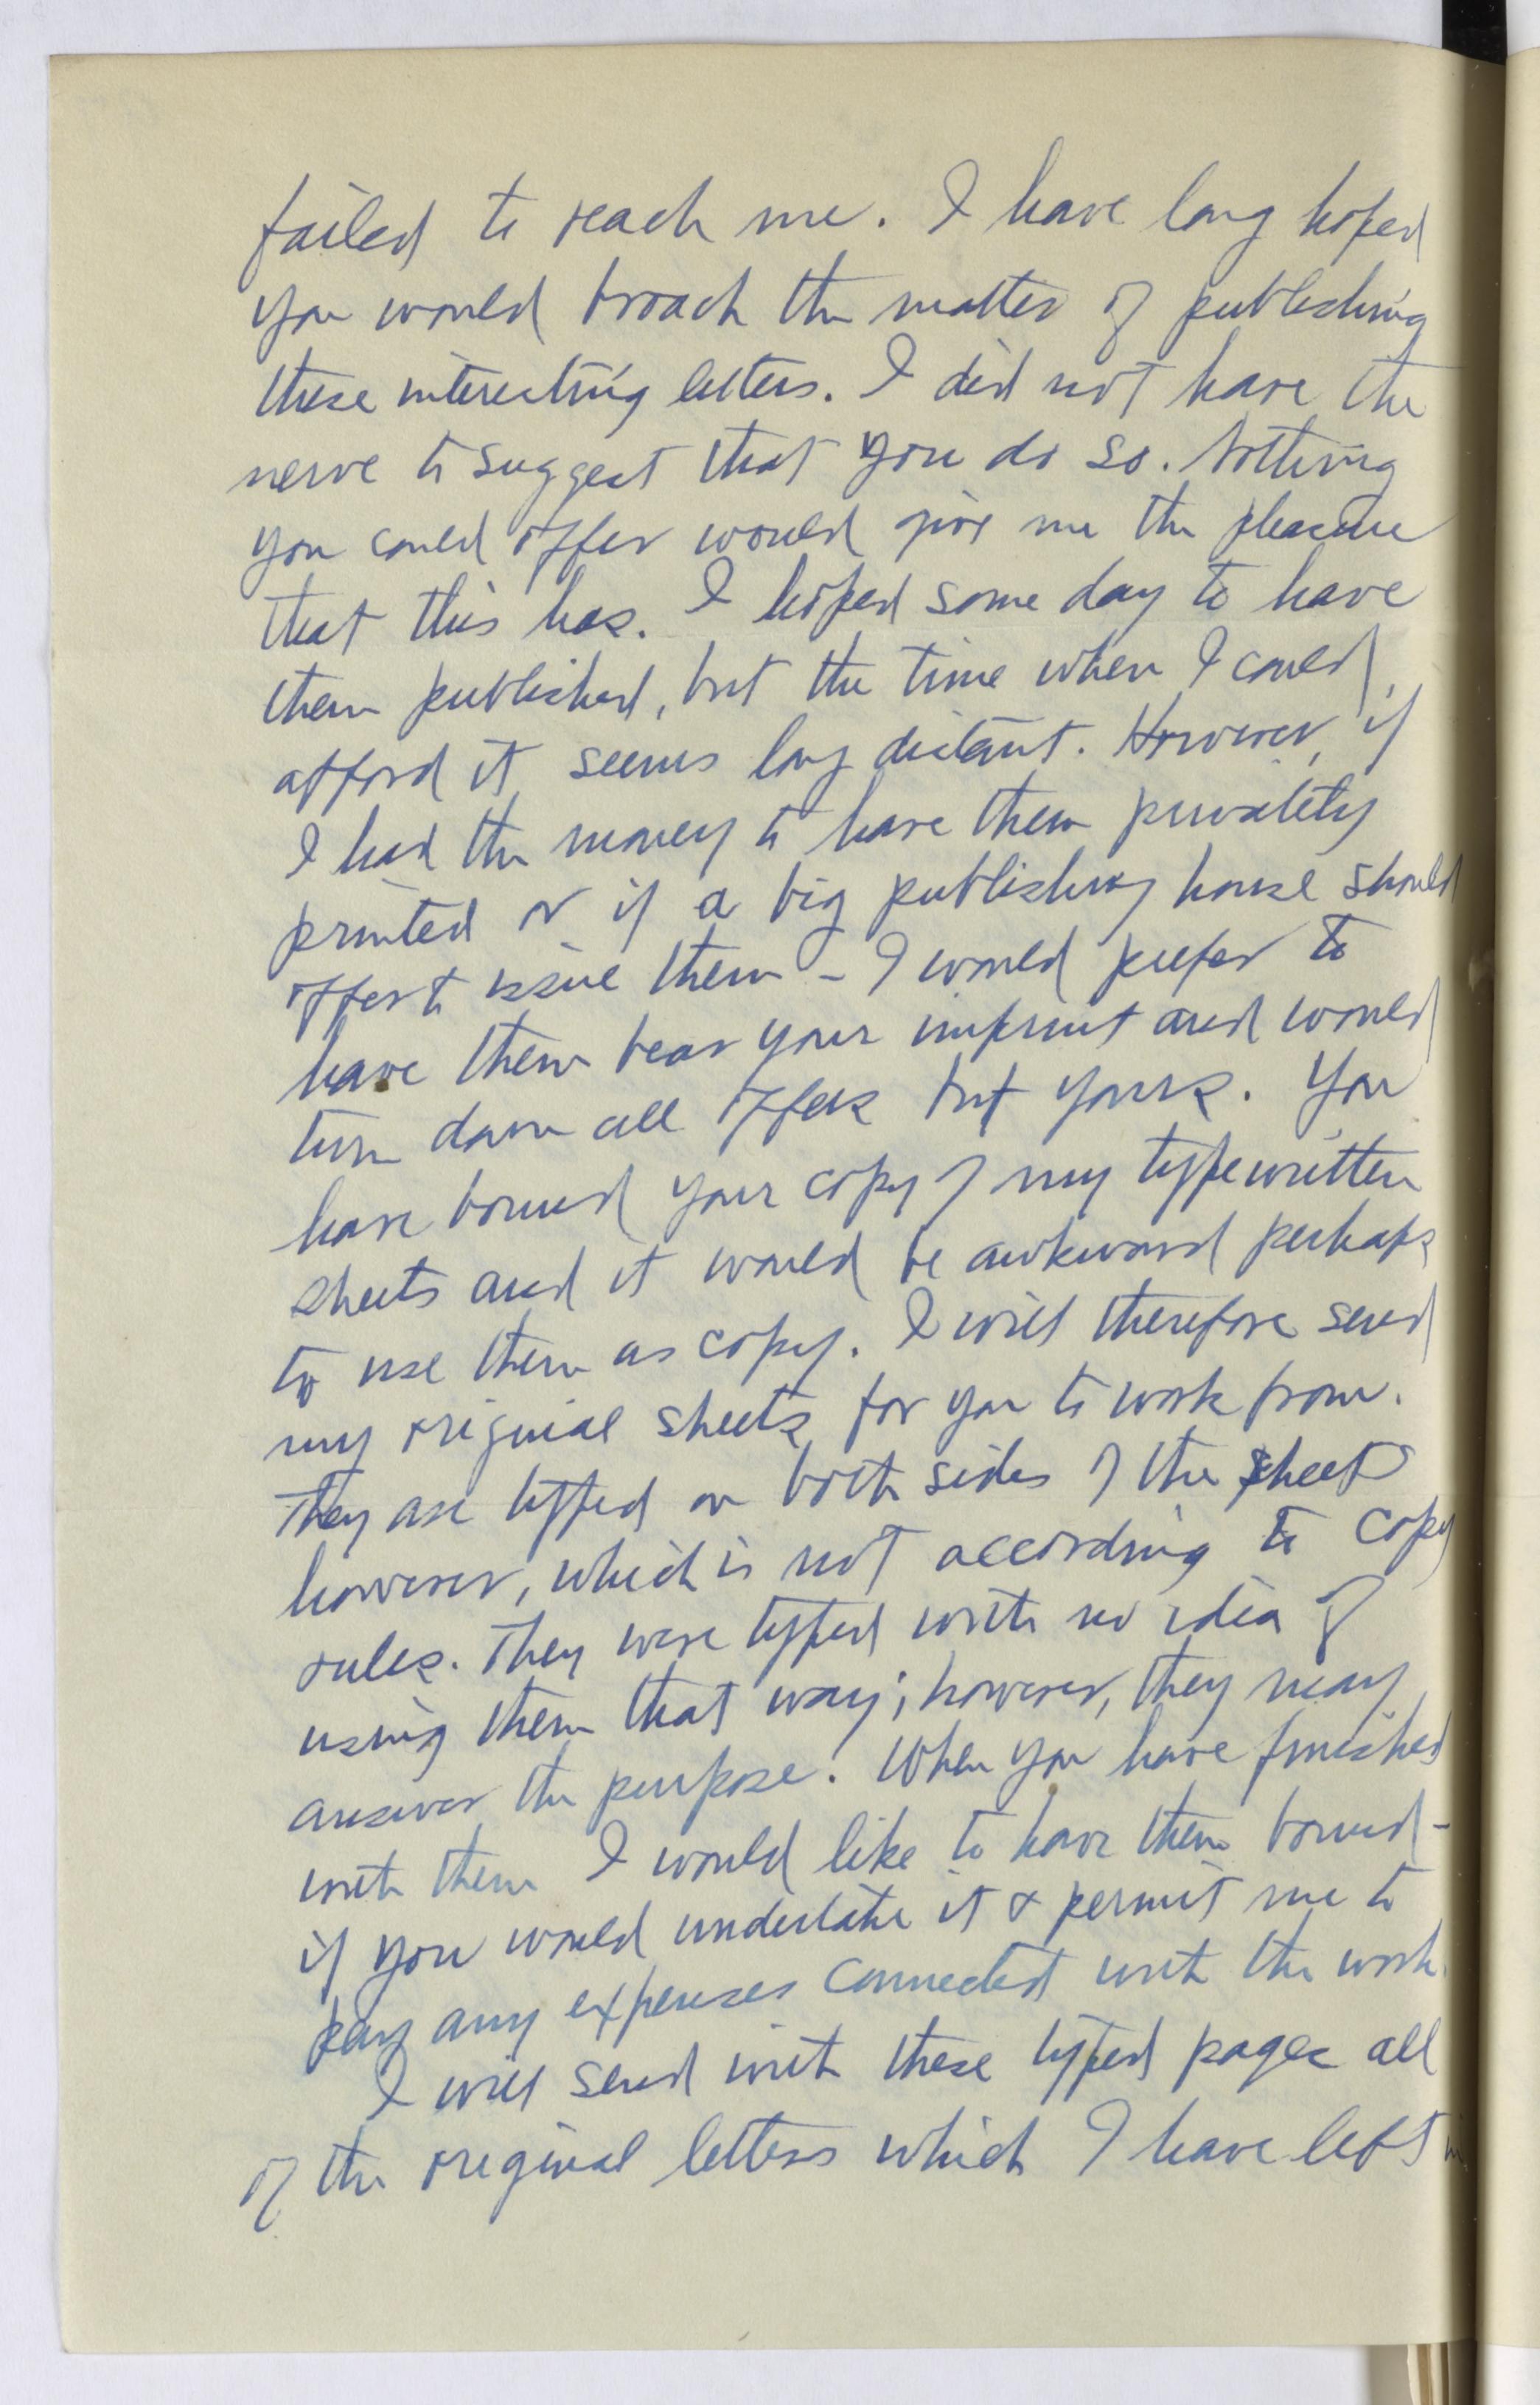 failed to reach me. I have long hoped
you would broach the matter of publishing
these interesting letters. I did not have the
nerve to suggest that you do so. Nothing
you could offer would give me the pleasure
that this has. I hoped some day to have
them published, but the time when I could
afford it seems long distant. However, if
I had the money to have them privately
printed or if a big publishing house should
offer to issue them - I would prefer to
have them bear your imprint and would
turn down all offers but yours. You
have bound your copy of my typewritten
sheets and it would be awkward perhaps
to use them as copy. I will therefore send
my original sheets for you to work from.
They are typed on both sides of the sheet
however, which is not according to copy
rules. They were typed with no idea of
using them that way; however, they may
answer the purpose. When you have finished
with them I would like to have them bound -
if you would undertake it & permit me to
pay any expenses connected with the work.
I will send with these typed pages all
of the original letters which I have left in